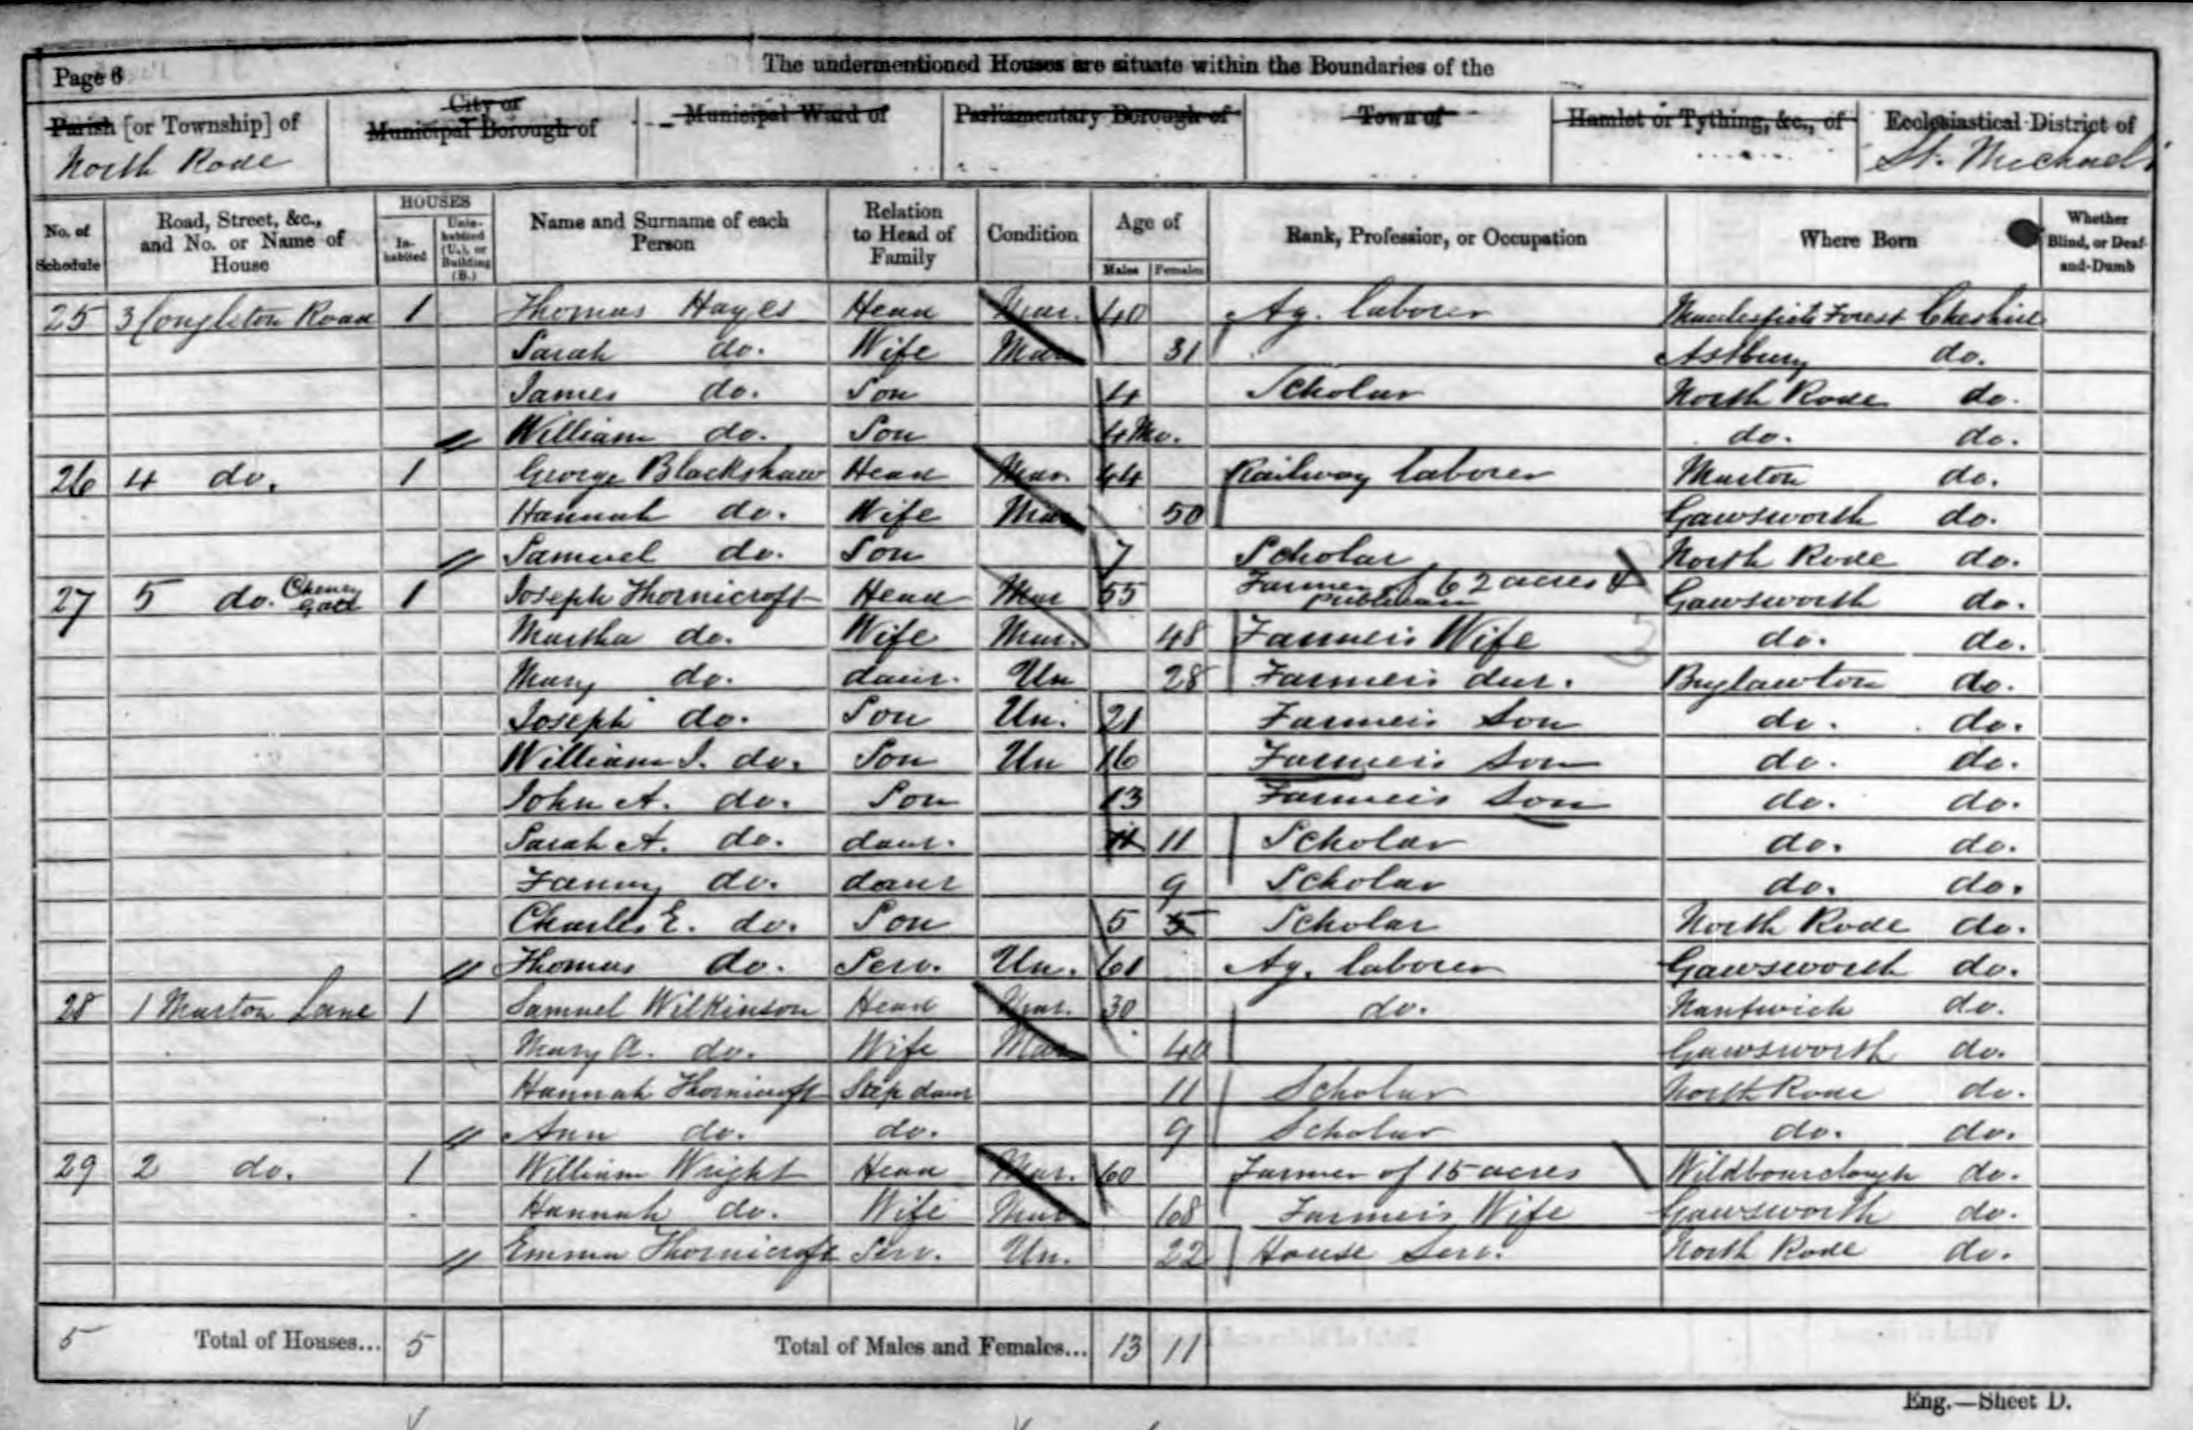 Page 6
The undermentioned Houses are situate within the Boundaries of the
Parish [or Township] of
North Rode
City or
Municipal Borough of
Municipal Ward of
Parliamentary Borough of
Town of
Hamlet or Tything, &c., of
Ecclesiastical District of
St. Michael's
No. of Schedule
Road, Street, &c., and No. or Name of House
HOUSES
In-habited
Unin-habited (U.), or Building (B.)
Name and Surname of each Person
Relation to Head of Family
Condition
Age of
Males
Females
Rank, Profession, or Occupation
Where Born
Whether Blind, or Deaf-and-Dumb
25 3 Congleton Road 1 Thomas Hayes Head Mar. 40 Ag. laborer Macclesfield Forest Cheshire
Sarah do. Wife Mar 31 Astbury do.
James do. Son 4 Scholar North Rode do.
William do. Son 4 Mo. do. do.
26 4 do. 1 George Blackshaw Head Mar. 44 Railway laborer Marton do.
Hannah do. Wife Mar 50 Gawsworth do.
Samuel do. Son 7 Scholar North Rode do.
27 5 do. Cheney Gate 1 Joseph Thornicroft Head Mar 55 Farmer of 62 acres & publican Gawsworth do.
Martha do. Wife Mar. 48 Farmer's Wife do. do.
Mary do. daur. Un 28 Farmer's dur. Buglawton do.
Joseph do. Son Un. 21 Farmer's Son do. do.
William J. do. Son Un 16 Farmer's Son do. do.
John A. do. Son 13 Farmer's Son do. do.
Sarah A. do. daur. 11 11 Scholar do. do.
Fanny do. daur 9 Scholar do. do.
Charles E. do. Son 5 5 Scholar North Rode do.
Thomas do. Serv. Un. 61 Ag. laborer Gawsworth do.
28 1 Marton Lane 1 Samuel Wilkinson Head Mar. 30 do. Nantwich do.
Mary A. do. Wife Mar 40 Gawsworth do.
Hannah Thornicroft Step daur 11 Scholar North Rode do.
Ann do. do. 9 Scholar do. do.
29 2 do. 1 William Wright Head Mar. 60 Farmer of 15 acres Wildbourclough do.
Hannah do. Wife Mar 68 Farmer's Wife Gawsworth do.
Emma Thornicroft Serv. Un. 22 House Serv. North Rode do.
5 Total of Houses... 5 Total of Males and Females... 13 11
Eng.—Sheet D.